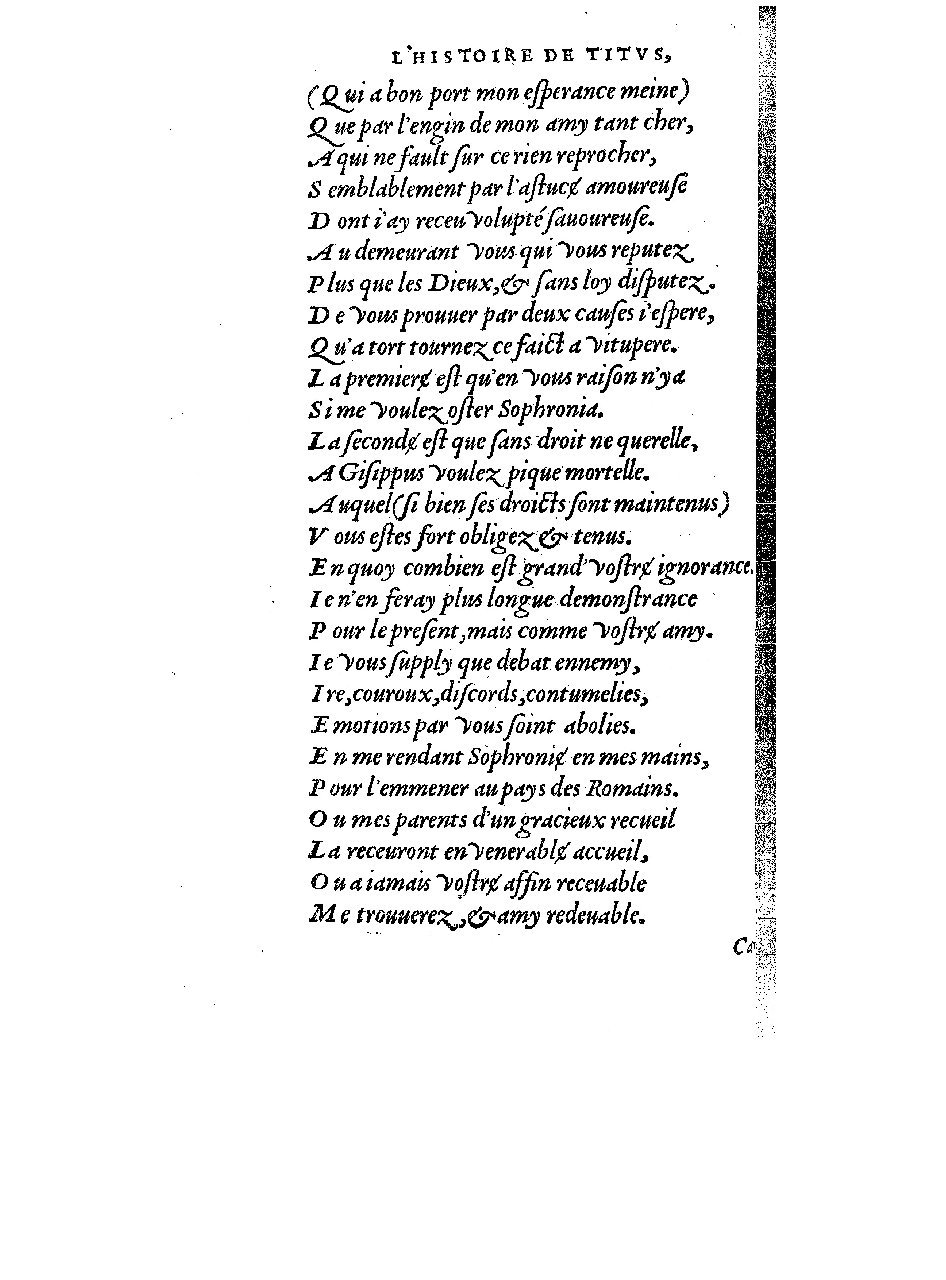 L'HISTOIRE DE TITVS,
(Qui a bon port mon eſperance meine)
Que par l'engin de mon amy tant cher,
A qui ne fault ſur ce rien reprocher,
Semblablement par l'aſtucɇ amoureuſe
Dont i'ay receu volupté ſauoureuſe.
Au demeurant vous qui vous reputez
Plus que les Dieux, & ſans loy diſputez.
De vous prouuer par deux cauſes i'eſpere,
Qu'a tort tournez ce faict a vitupere.
La premierɇ eſt qu'en vous raiſon n'ya
Si me voulez oſter Sophronia.
La ſecondɇ eſt que ſans droit ne querelle,
A Giſippus voulez pique mortelle.
Auquel (ſi bien ſes droicts ſont maintenus)
Vous eſtes fort obligez & tenus.
En quoy combien eſt grand' voſtrɇ ignorance.
Ie n'en feray plus longue demonſtrance
Pour le preſent, mais comme voſtrɇ amy.
Ie vous ſupply que debat ennemy,
Ire, couroux, diſcords, contumelies,
Emotions par vous ſoint abolies.
En me rendant Sophroniɇ en mes mains,
Pour l'emmener au pays des Romains.
Ou mes parents d'un gracieux recueil
La receuront en venerablɇ accueil,
Ou a iamais voſtrɇ affin receuable
Me trouuerez, & amy redeuable.
Ca